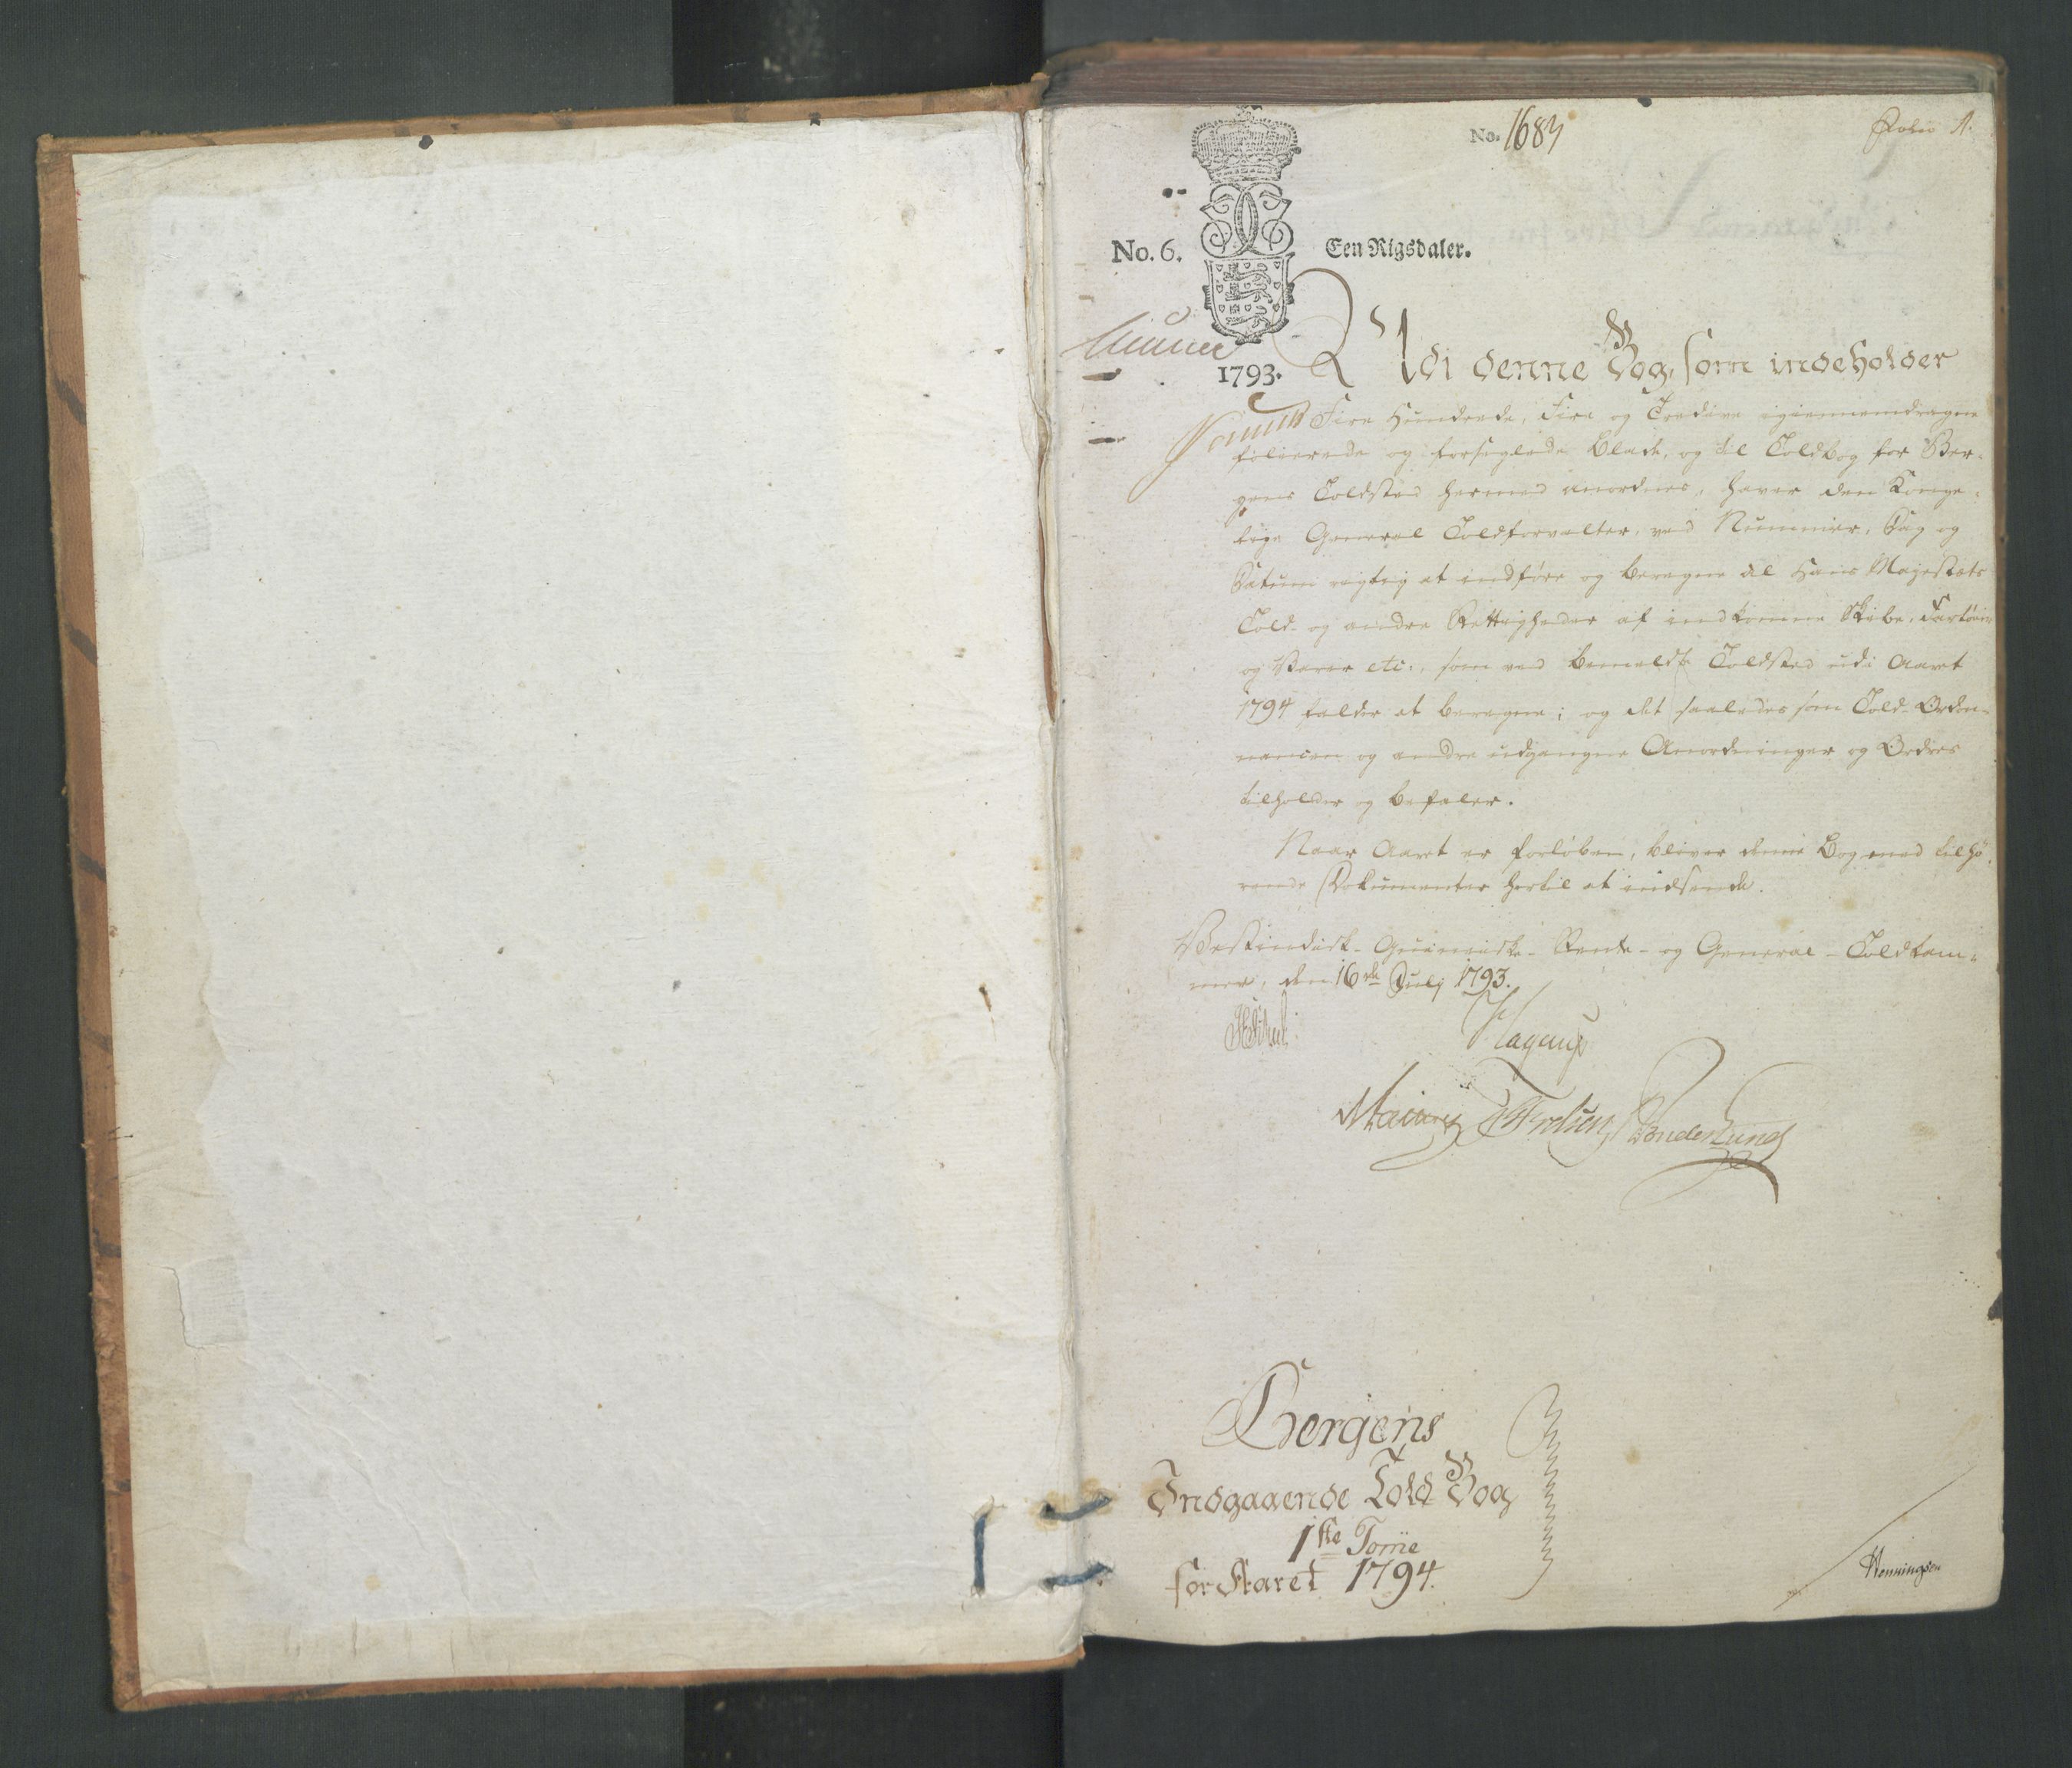 No. 1683
Folio 1.
No. 6.
Een Rigsdaler.
1793.
Udi denne Bog, som indeholder
Fire Hundrede, Fire og Tredive igiennemdragne
folierede og forseglede Blade, og til Toldbog for Ber-
gens Toldsted hermed anordnes, haver den Konge-
lige General Toldforvalter, ved Nummer, Dag og
Datum rigtig at indføre og beregne al Hans Majestæts
Told- og andre Rettigheder af indkomne Skibe, Fartøier
og Varer etc:, som ved bemeldte Toldsted udi Aaret
1794 falder at beregne; og det saaledes som Told-Ordon-
nancen og andre udgangne Anordninger og Ordres
tilholder og befaler.
Naar Aaret er forløben, bliver denne Bog med tilhø-
rende Dokumenter hertil at indsende.
Vestindisk- Guineisk- Rente- og General-Toldkam-
mer, den 16de July 1793.
Hagerup
Bergens
Indgaaende Told Bog
1ste Tome
for Aaret 1794.
Henningsen